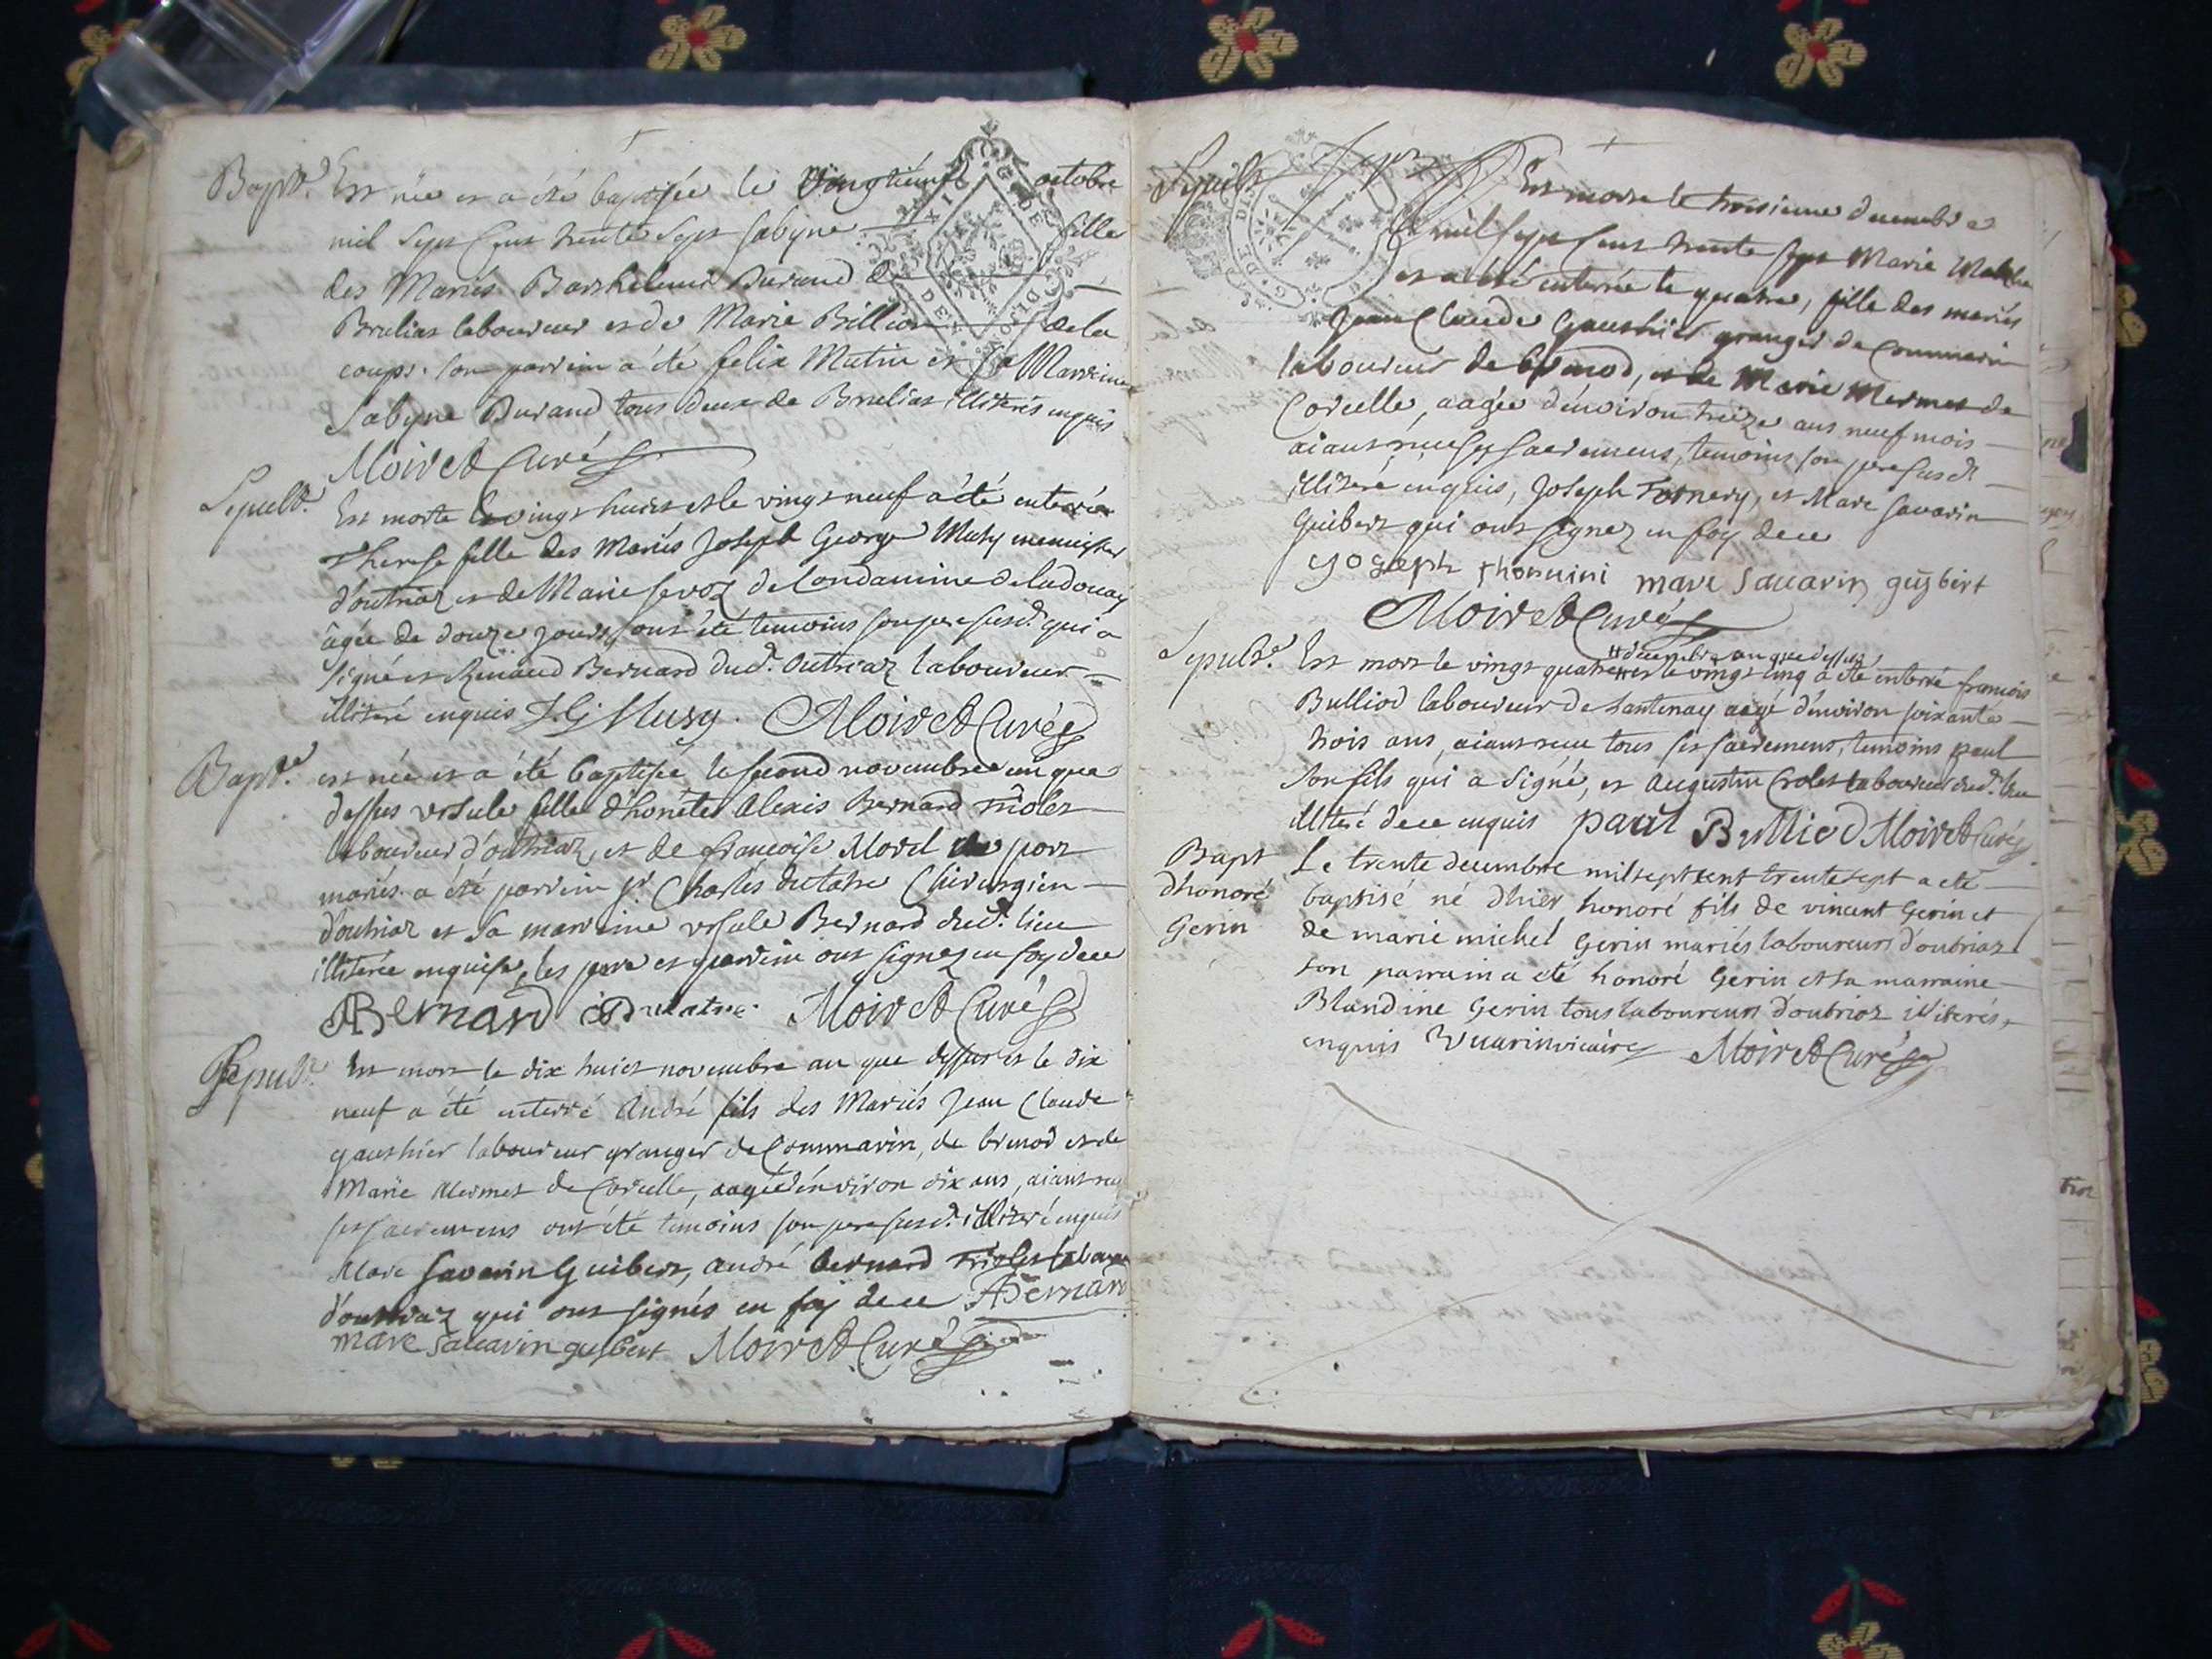 Bapt.
Est née et a été baptisée le vingtiéme octobre
mil sept cens trente sept sabyne fille
des Mariés Barthelemi Durand de
Brulias laboureur et de Marie Billion de la
coupe. son parrein a été felix Mutin et sa Marreine
Sabyne Durand tous deux de Brulias illiterés enquis
Moiret Curé
Sepult.
Est morte le vingt huict et le vingt neuf a été enterrée
Therese fille des Mariés Joseph George Musy menuisier
d'outriaz et de Marie sevoz de Condamine de la douay
âgée de douze jours, ont été temoins son pere susd. qui a
signé et Renaud Bernard dud. Outriaz laboureur
illiteré enquis J. G. Musy. Moiret Curé
Bapt.
est née et a été baptisée le second novembre an que
dessus ursule fille d'honetes Alexis Bernard triolet
laboureur d'outriaz, et de francoise Morel du port
mariés. a été parrein sr. Charles Chirurgien
d'outriaz et sa marreine ursule Bernard dud. lieu
illiterée enquise, les pere et parrein ont signez en foy de ce
ABernard Moiret Curé
Sepult.
Est mort le dix huict novembre an que dessus et le dix
neuf a été enterré André fils des Mariés Jean Claude
gauthier laboureur granger de Commarin, de brenod et de
Marie Mermet de Corcelle, aagé d'environ dix ans, aiant reçu
ses sacremens ont été témoins son pere susd. illiteré enquis
Marc Savarin Guibert, andré bernard triolet labour
d'outriaz qui ont signés en foy de ce ABernar
marc savarin guybert Moiret Curé
Sepult.
Est morte le troisieme decembre
mil sept cens trente sept Marie
et a été enterrée le quatre, fille des mariés
Jean Claude Gauthier granger de Commarin
laboureur de brenod, et de Marie Mermet de
Corcelle, aagée d'environ treize ans neuf mois
aiant reçu ses sacremens, temoins son pere susd.
illiteré enquis, Joseph et Marc savarin
Guibert qui ont signez en foy de ce
yoseph thomini marc savarin guybert
Moiret Curé
Sepult.
# decembre an que dessus
Est mort le vingt quatre # et le vingt cinq a été enterré francois
Bulliod laboureur de hantenay aagé d'environ soixante
trois ans, aiant receu tous ses sacremens, temoins paul
son fils qui a signé, et augustin laboureur dud. lieu
illiteré de ce enquis paul Bulliod Moiret Curé
Bapt
d'honoré
Gerin
Le trente decembre mil sept cent trente sept a eté
baptisé né d'hier honoré fils de vincent Gerin et
de marie michel Gerin mariés laboureurs d'outriaz
son parrain a eté honoré Gerin et sa marraine
Blandine Gerin tous laboureurs d'outriaz illiterés,
enquis Vuarin vicaire Moiret Curé